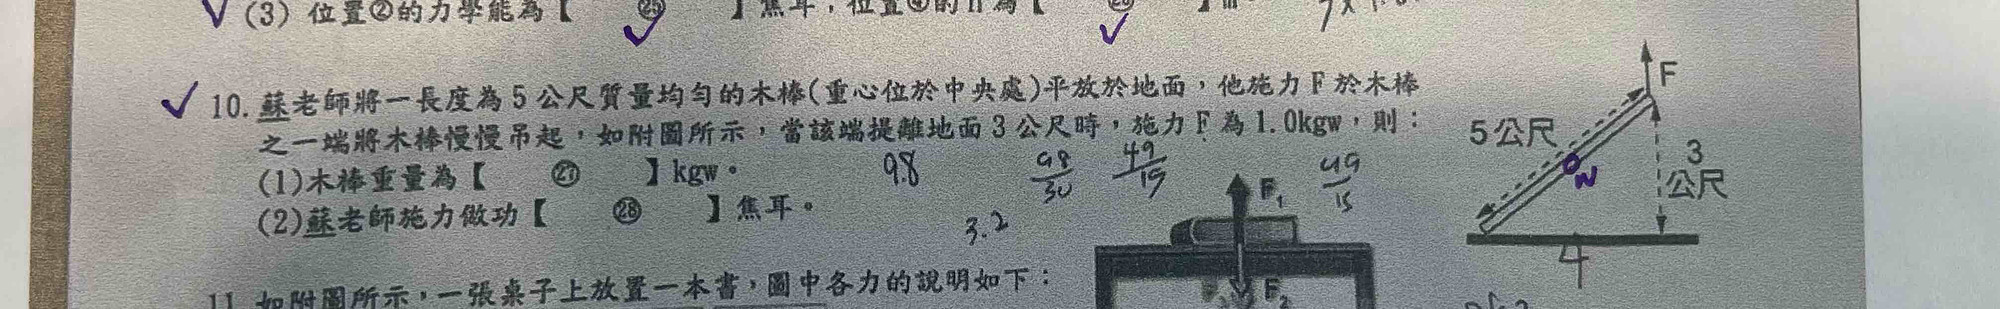 (3) 位置②的力學能為【 ㉕ 】焦耳,位置④的H為【 ㉖ 】m。
10. 蘇老師將一長度為5公尺質量均勻的木棒(重心位於中央處)平放於地面,他施力F於木棒
之一端將木棒慢慢吊起,如附圖所示,當該端提離地面3公尺時,施力F為1.0kgw,則:
(1)木棒重量為【 ㉗ 】kgw。
(2)蘇老師施力做功【 ㉘ 】焦耳。
9.8
98/30
49/15
49/15
3.2
F
5公尺
3
公尺
W
4
F₁
F₂
11. 如附圖所示,一張桌子上放置一本書,圖中各力的說明如下: